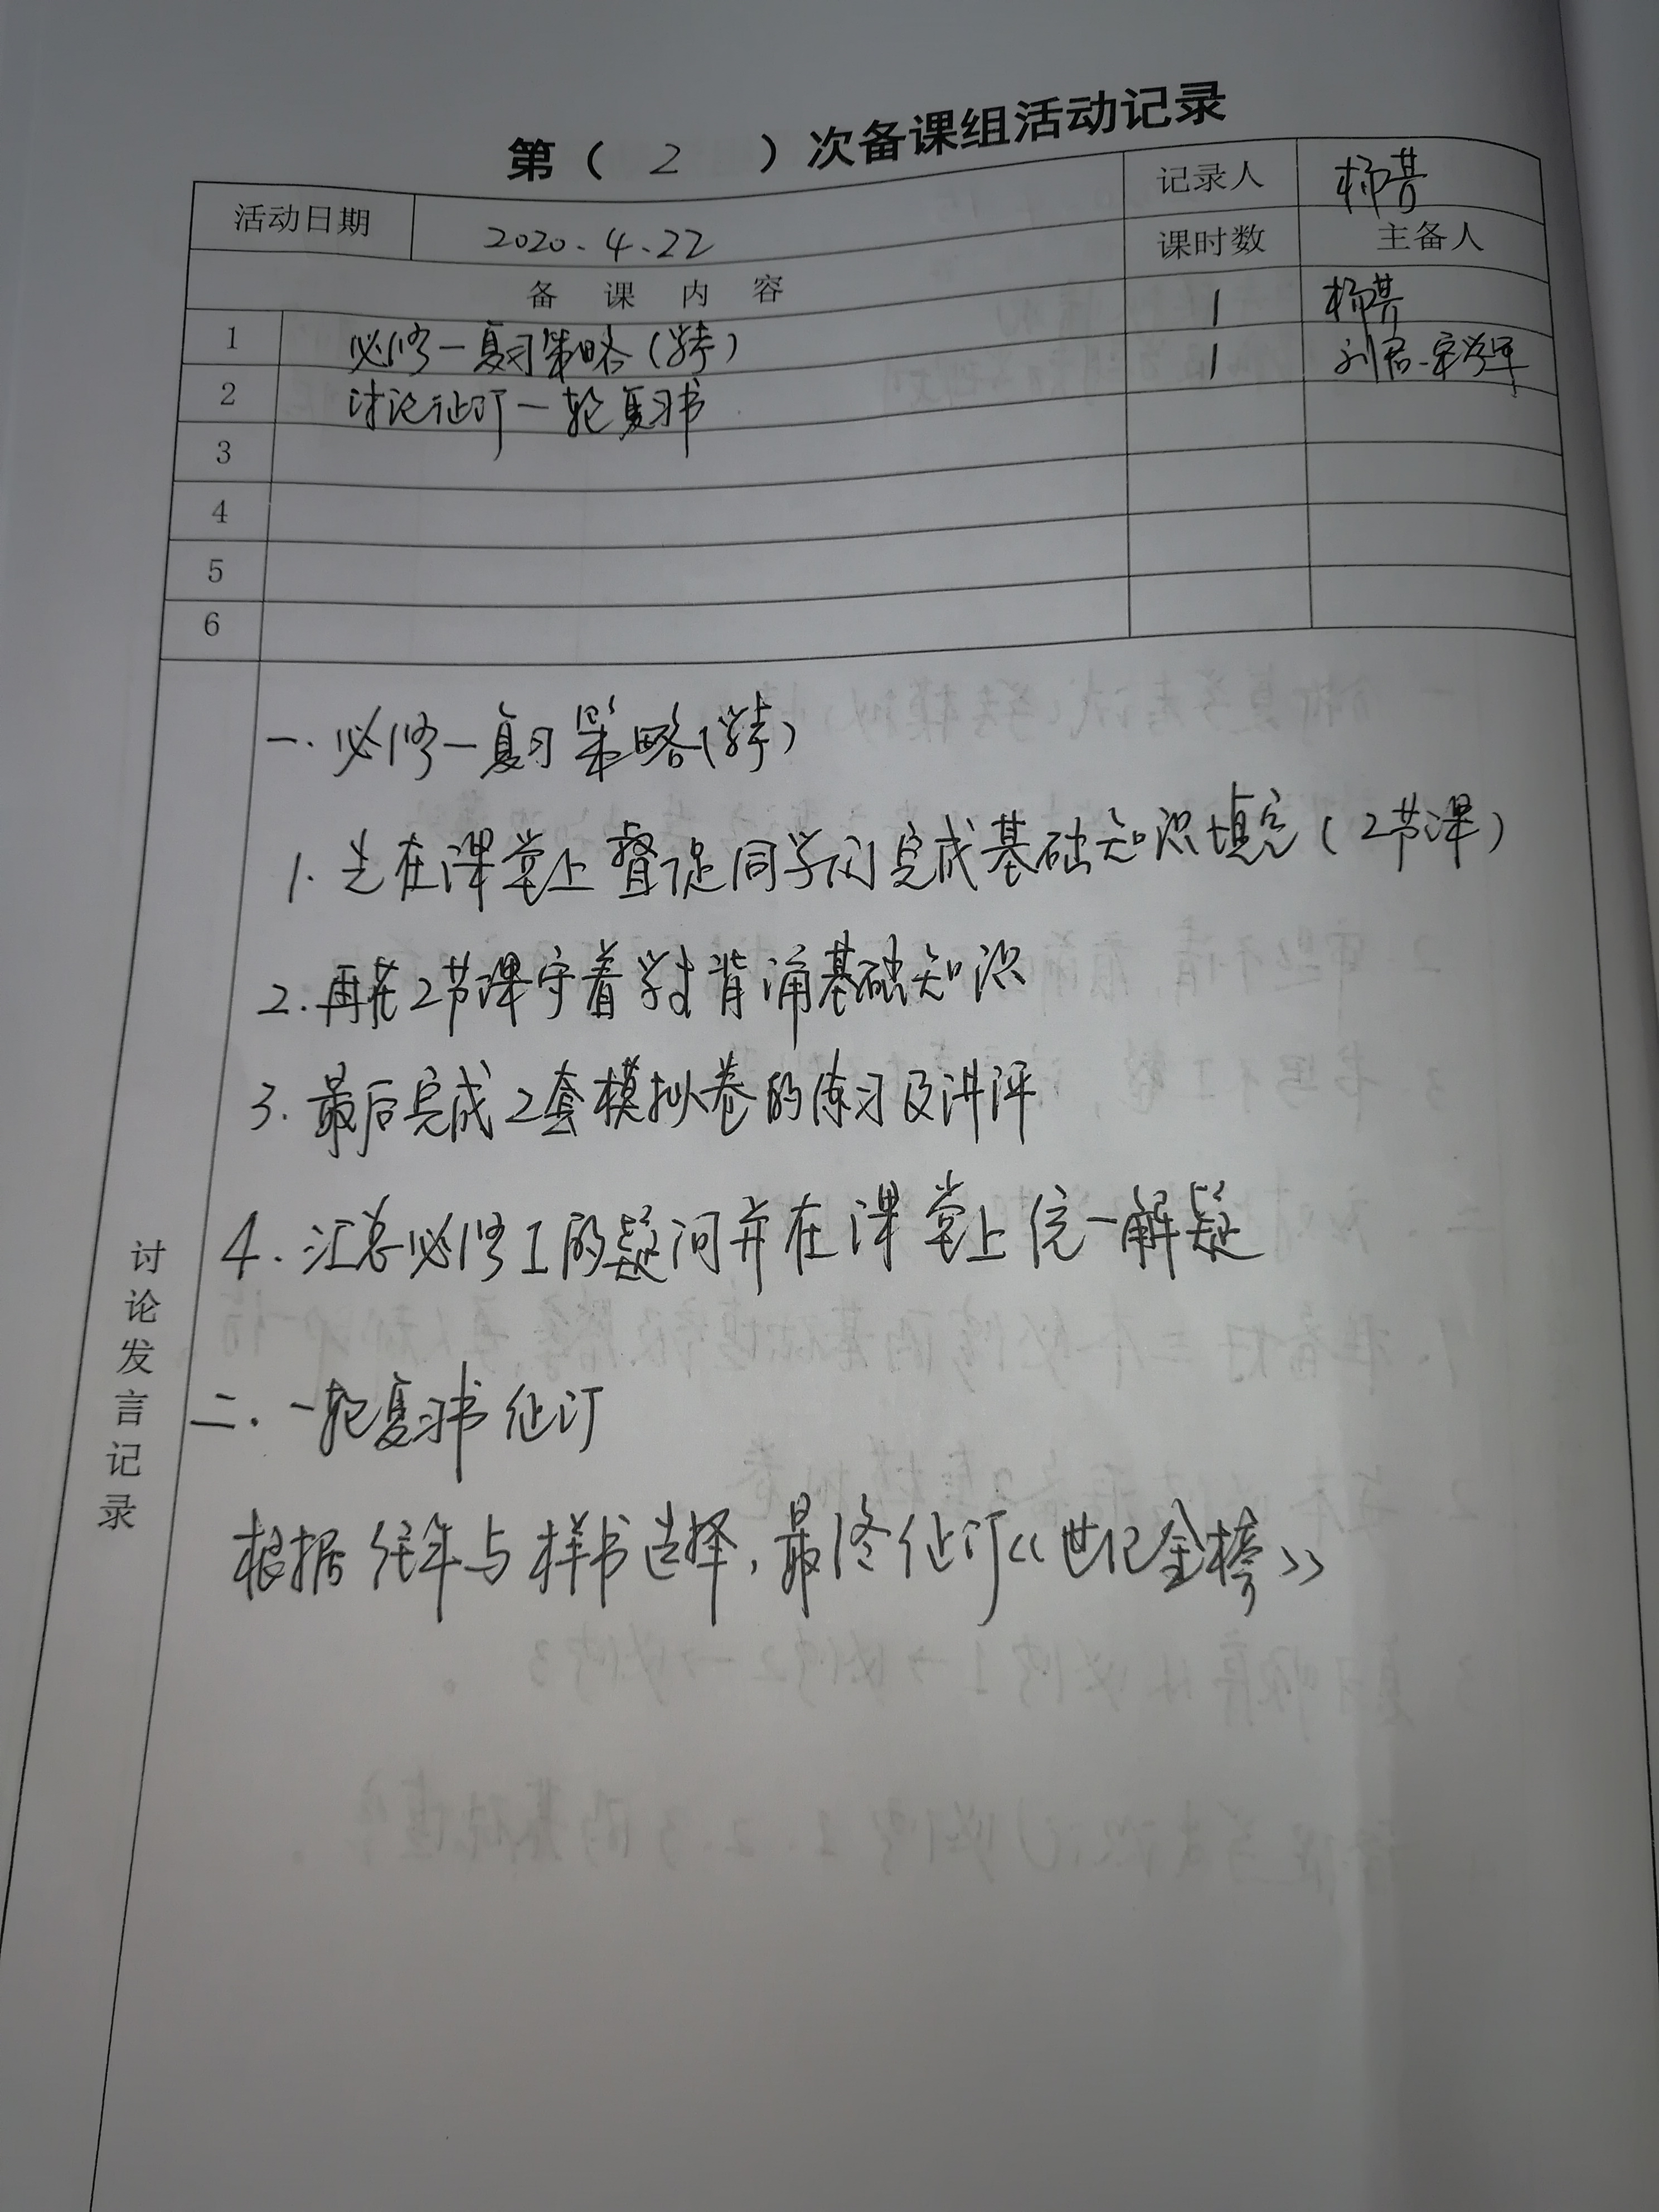 第（ 2 ）次备课组活动记录
活动日期 2020.4.22 记录人
备课内容 课时数 主备人
1 必修一复习策略(学考) 1
2 讨论征订一轮复习书 1
3
4
5
6
讨论发言记录
一. 必修一复习策略(学考)
1. 先在课堂上督促同学们完成基础知识填完(2节课)
2. 再花2节课守着学生背诵基础知识
3. 最后完成2套模拟卷的练习及讲评
4. 汇总必修1的疑问并在课堂上统一解疑
二. 一轮复习书征订
根据往年与样书选择,最终征订《世纪金榜》